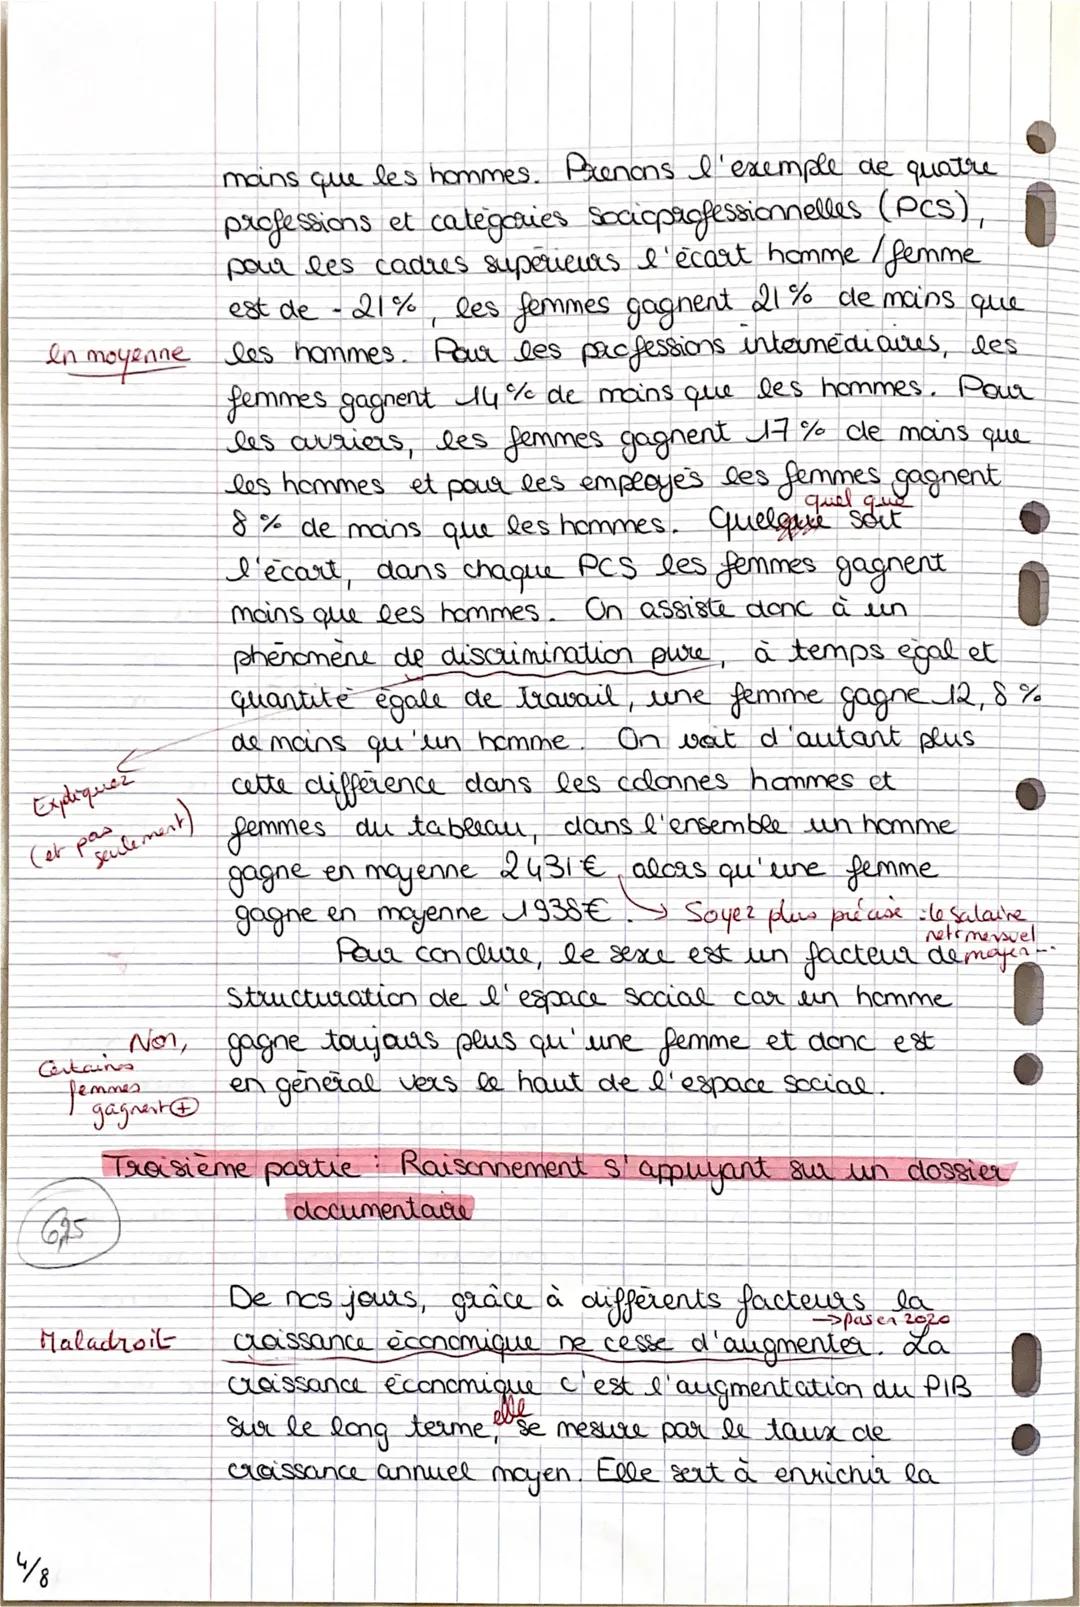 moins que les hommes. Prenons l'exemple de quatre
professions et catégories socioprofessionnelles (PCS),
pour les cadres supérieurs l'écart homme / femme
est de - 21 %, les femmes gagnent 21 % de moins que
en moyenne
les hommes. Pour les professions intermédiaires, les
femmes gagnent 14 % de moins que les hommes. Pour
les ouvriers, les femmes gagnent 17 % de moins que
les hommes et pour les employés les femmes gagnent
quel que
8 % de moins que les hommes. Quelque soit
l'écart, dans chaque PCS les femmes gagnent
moins que les hommes. On assiste donc à un
phénomène de discrimination pure, à temps égal et
quantité égale de travail, une femme gagne 12,8 %
de moins qu'un homme. On voit d'autant plus
Expliquez
cette différence dans les colonnes hommes et
(et pas seulement)
femmes du tableau, dans l'ensemble un homme
gagne en moyenne 2431 €, alors qu'une femme
gagne en moyenne 1938 €. → Soyez plus précise : le salaire
net mensuel
moyen...
Pour conclure, le sexe est un facteur de
structuration de l'espace social car un homme
Non,
certaines
femmes
gagnent +
gagne toujours plus qu'une femme et donc est
en général vers le haut de l'espace social.
Troisième partie : Raisonnement s'appuyant sur un dossier
documentaire
6,25
De nos jours, grâce à différents facteurs la
→ pas en 2020
Maladroit
croissance économique ne cesse d'augmenter. La
croissance économique c'est l'augmentation du PIB
elle
sur le long terme, se mesure par le taux de
croissance annuel moyen. Elle sert à enrichir la
4/8